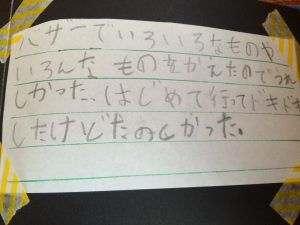 バザーでいろいろなものや
いろんな ものをかえたのでうれ
しかった、はじめて行ってドキドキ
したけどたのしかった。